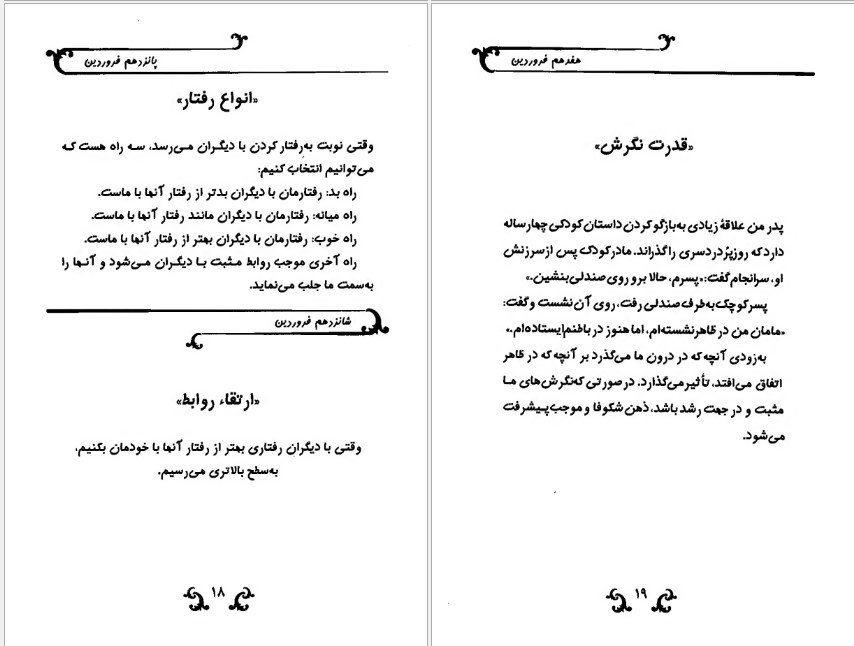 پانزدهم فروردین
«انواع رفتار»
وقتی نوبت به‌رفتار کردن با دیگران می‌رسد، سه راه هست که
می‌توانیم انتخاب کنیم:
راه بد: رفتارمان با دیگران بدتر از رفتار آنها با ماست.
راه میانه: رفتارمان با دیگران مانند رفتار آنها با ماست.
راه خوب: رفتارمان با دیگران بهتر از رفتار آنها با ماست.
راه آخری موجب روابط مثبت با دیگران می‌شود و آنها را
به‌سمت ما جلب می‌نماید.
شانزدهم فروردین
«ارتقاء روابط»
وقتی با دیگران رفتاری بهتر از رفتار آنها با خودمان بکنیم،
به‌سطح بالاتری می‌رسیم.
۱۸
هفدهم فروردین
«قدرت نگرش»
پدر من علاقهٔ زیادی به‌بازگو کردن داستان کودکی چهارساله
دارد که روز پُر دردسری را گذراند. مادر کودک پس از سرزنش
او، سرانجام گفت: «پسرم، حالا برو روی صندلی بنشین.»
پسر کوچک به‌طرف صندلی رفت، روی آن نشست و گفت:
«مامان من در ظاهر نشسته‌ام، اما هنوز در باطنم ایستاده‌ام.»
به‌زودی آنچه که در درون ما می‌گذرد بر آنچه که در ظاهر
اتفاق می‌افتد، تأثیر می‌گذارد. در صورتی که نگرش‌های ما
مثبت و در جهت رشد باشد، ذهن شکوفا و موجب پیشرفت
می‌شود.
۱۹